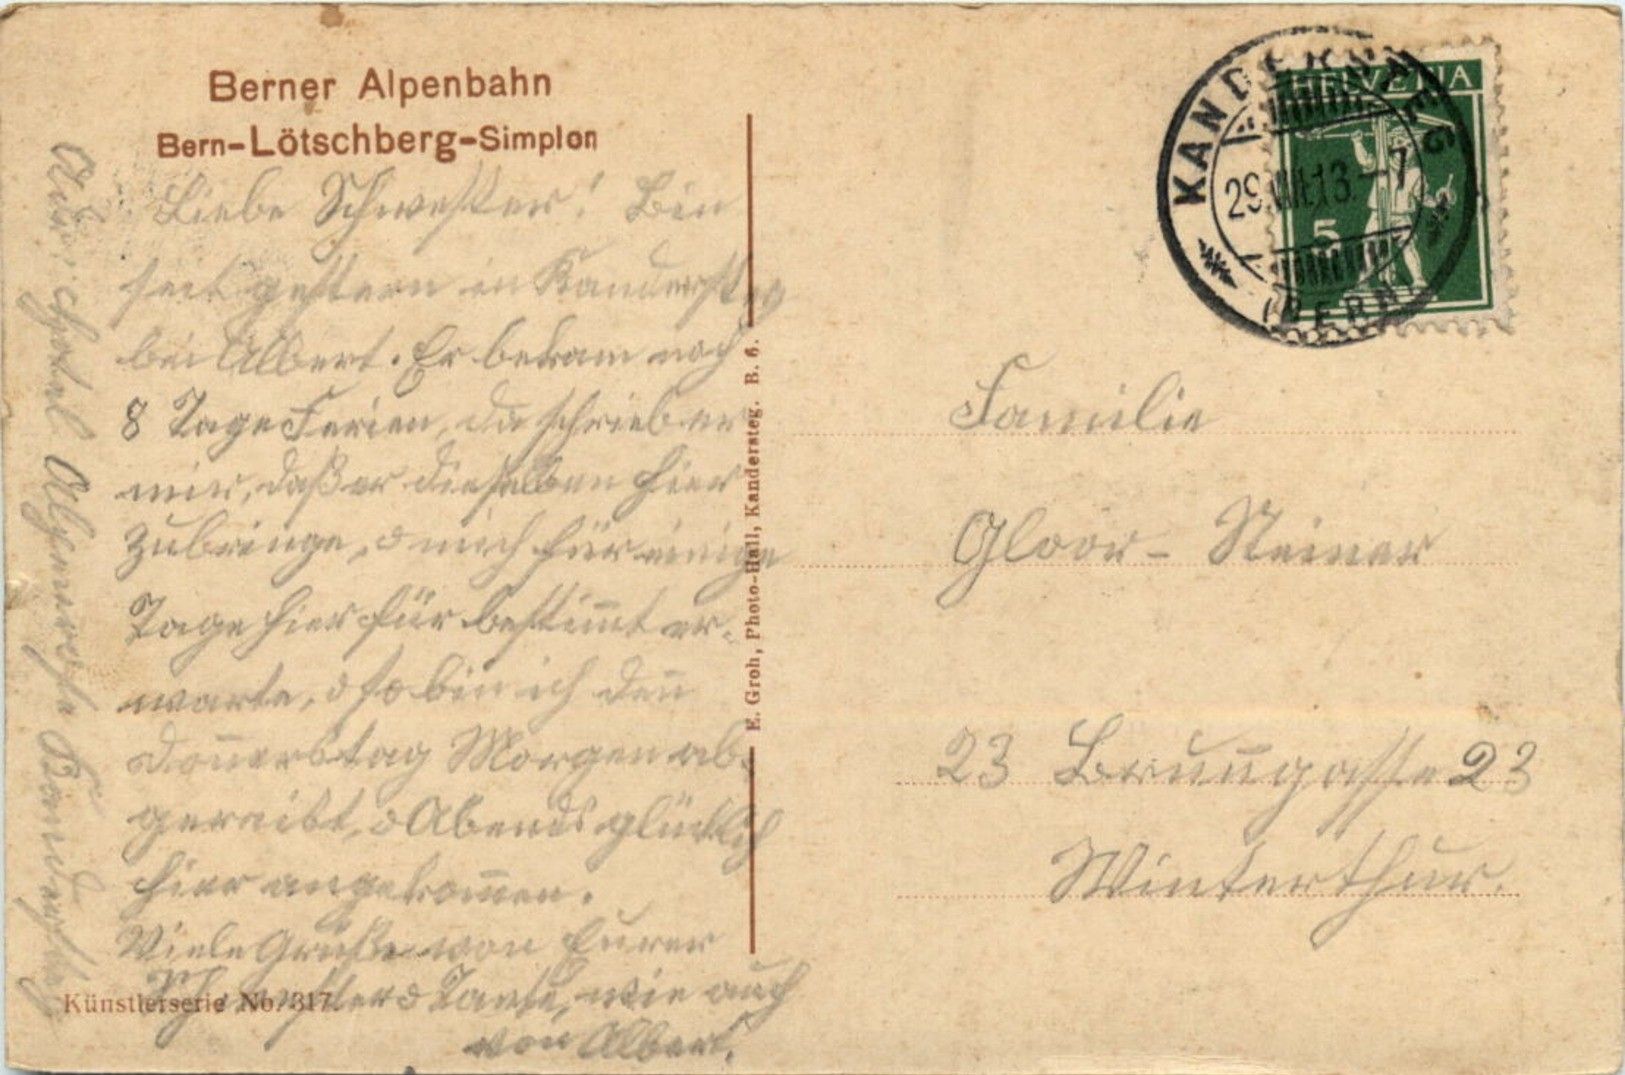 Berner Alpenbahn
Bern-Lötschberg-Simplon
Liebe Schwester! Bin
seit gestern in Kandersteg
bei Albert. Er bekam noch
8 Tage Ferien, da schrieb er
mir, daß er dieselben hier
zubringe, & mich für einige
Tage hier für bestim̅t er-
warte, & so bin ich den̅
Don̅erstag Morgen ab-
gereist, & Abends glücklich
hier angekom̅en.
Viele Grüße von Eurer
Schwester & Tante, wie auch
von Albert.
Hotel Alpenrose Kandersteg
Künstlerserie No. 317.
E. Groh, Photo-Hall, Kandersteg. B. 6.
KANDERSTEG
29.VIII.13.-7
(BERN)
HELVETIA
5
Familie
Gloor-Steiner
23 Brun̅gasse 23
Winterthur.